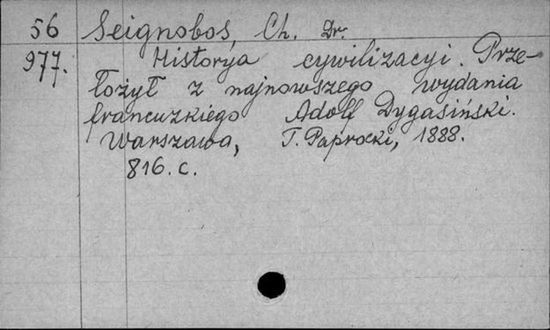 56 Seignoboś, Ch. Dr.
977. Historya cywilizacyi. Prze-
łożył z najnowszego wydania
francuzkiego Adolf Dygasiński.
Warszawa, T. Paprocki, 1888.
816. c.